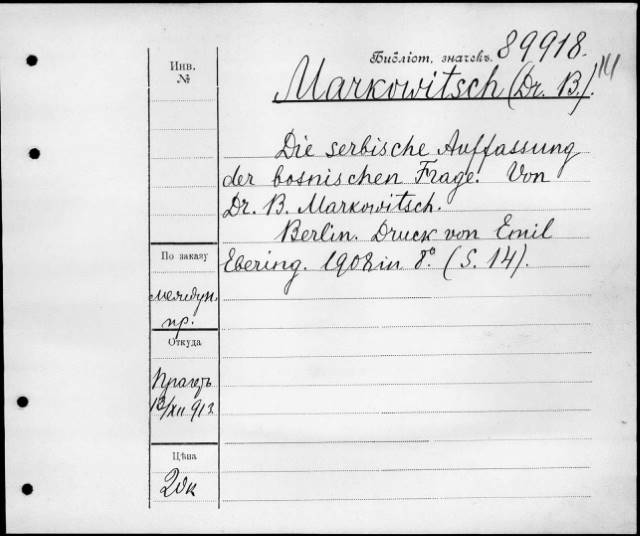 Библіот. значекъ. 89918.
Инв.
№
Markowitsch (Dr. B.).
Die serbische Auffassung
der bosnischen Frage. Von
Dr. B. Markowitsch.
Berlin. Druck von Emil
Ebering. 1908 in 8° (S. 14).
По заказу
междун.
пр.
Откуда
Прагеръ
/XII 912
Цѣна
20к